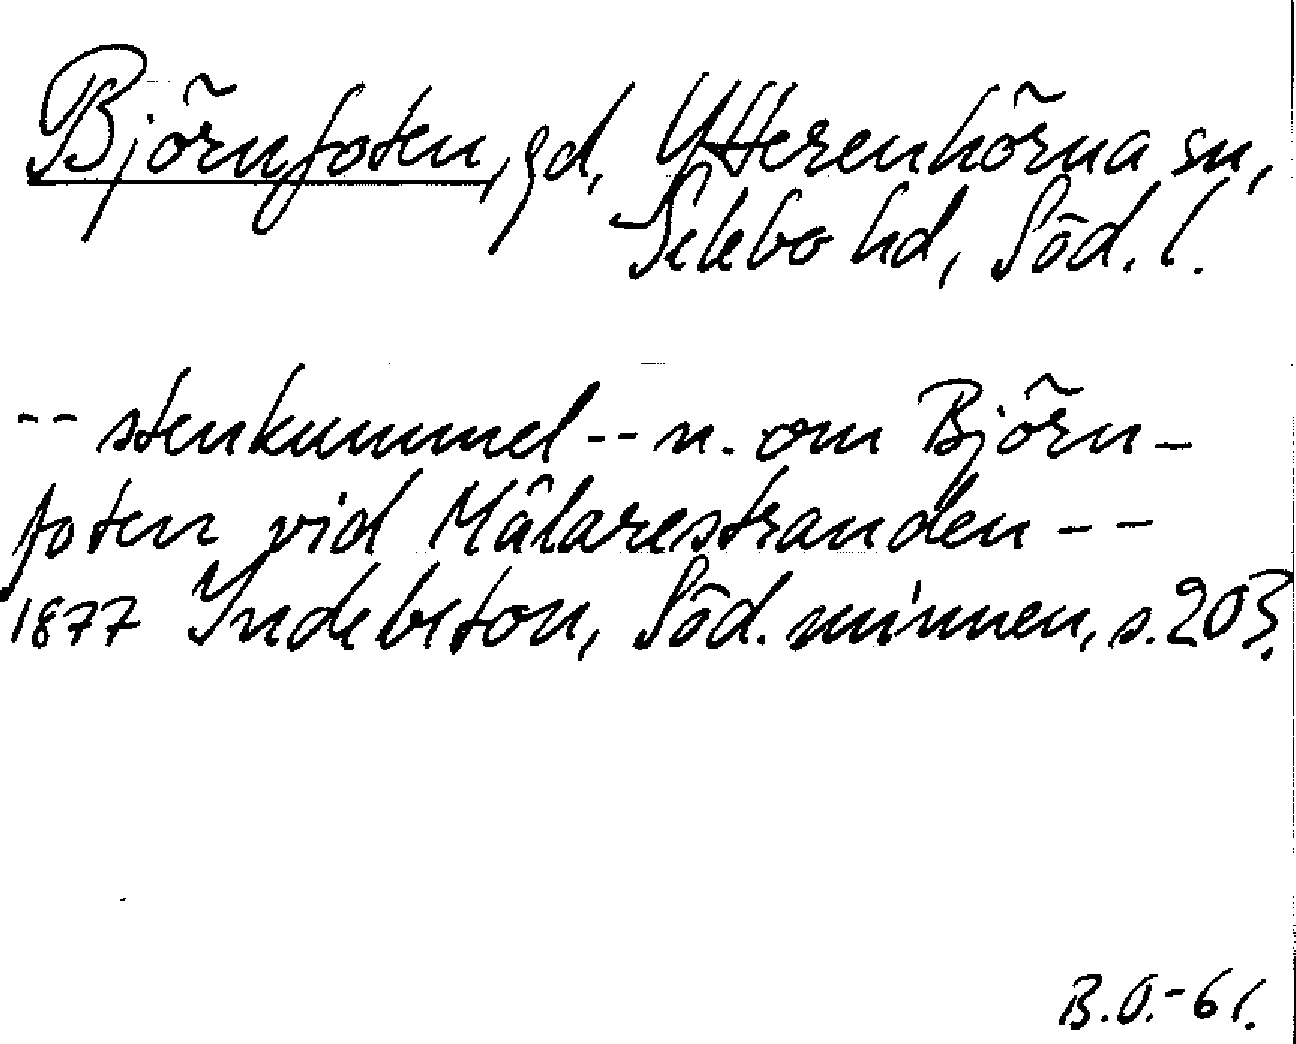 Björnfoten, gd, Ytterenhörna sn,
Selebo hd, Söd. l.
-- stenkummel -- n. om Björn-
foten vid Mälarestranden --
1877 Indebetou, Söd. minnen, s. 203.
B.O.-61.